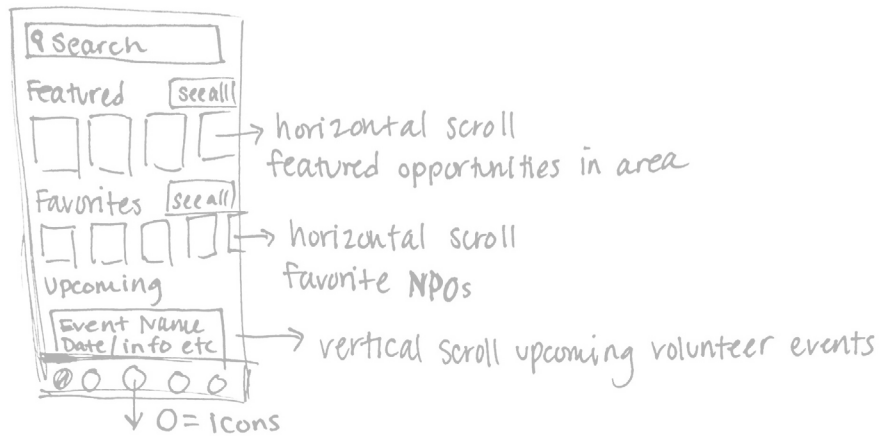 Search
Featured see all
horizontal scroll
featured opportunities in area
Favorites see all
horizontal scroll
favorite NPOs
upcoming
Event Name
Date/info etc
vertical scroll upcoming volunteer events
O = Icons